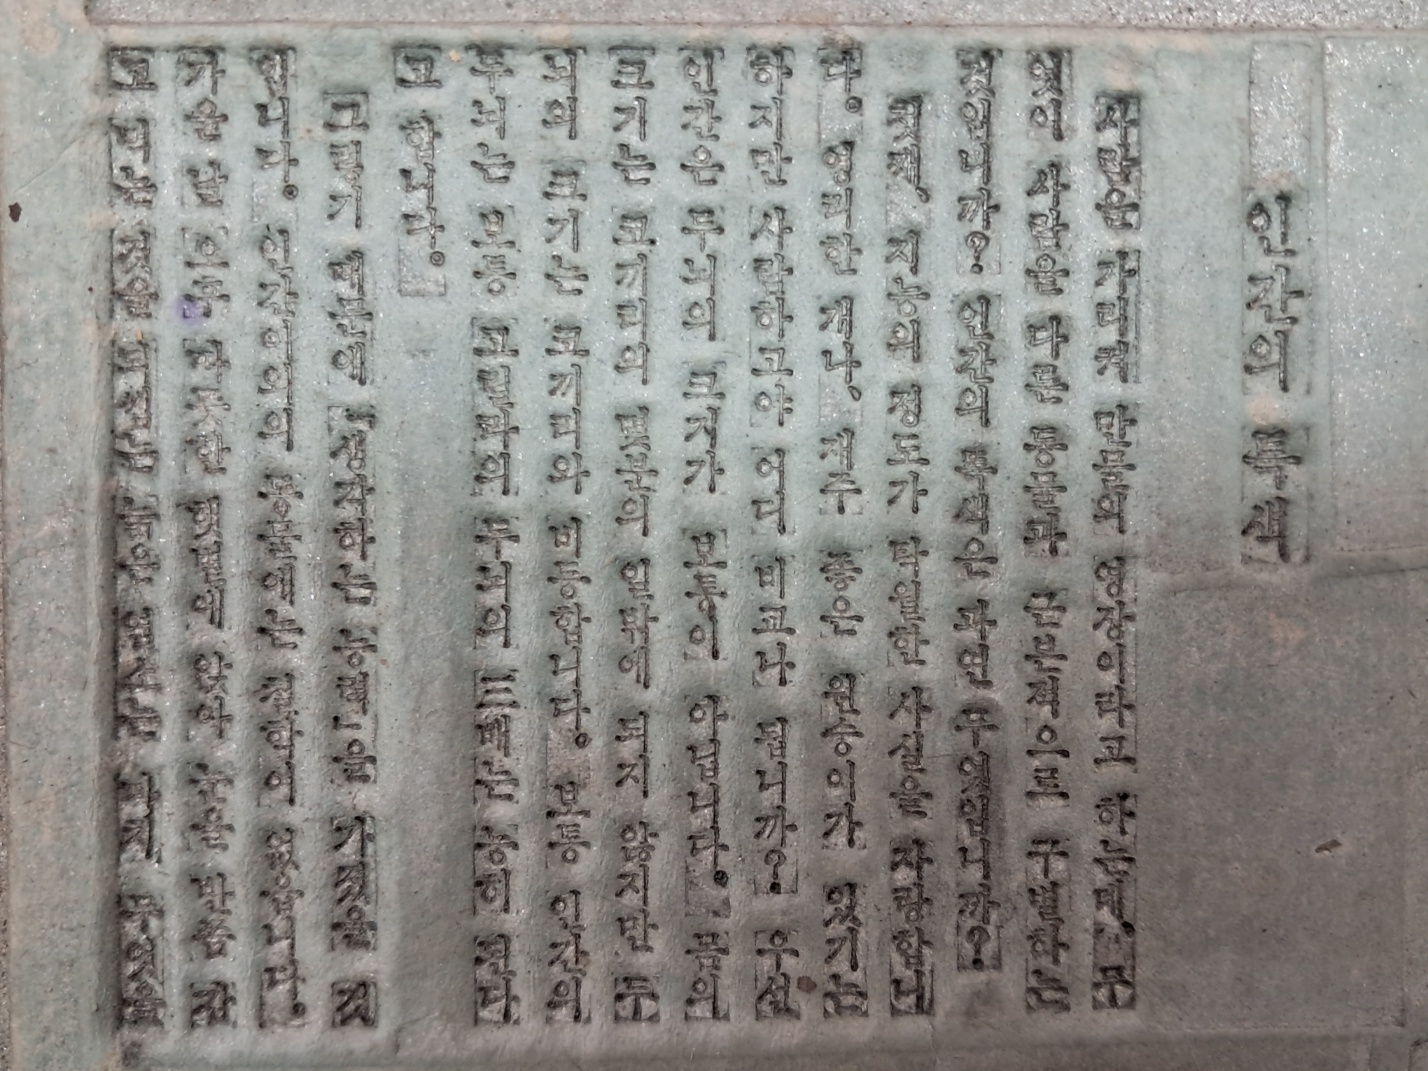 인간의 특색
사람을 가리켜 만물의 영장이라고 하는데, 무
엇이 사람을 다른 동물과 구별하는
것입니까? 인간의 특색은 과연 무엇입니까?
첫째, 지능의 정도가 탁월한 사실을 자랑합니
다. 영리한 개나, 재주 좋은 원숭이가 있기는
하지만 사람하고야 어디 비교나 됩니까? 우선
인간은 두뇌의 크기가 보통이 아닙니다. 몸의
크기는 코끼리의 몇분의 일밖에 되지 않지만 두
뇌의 크기는 코끼리와 비등합니다. 보통 인간의
두뇌는 보통 고릴라의 두뇌의 三배는 실히 된다
고 합니다.
그렇기 때문에 「생각하는 동물」을
입니다. 인간이외의 동물에는 철학이 없습니다.
가을 달 아래 고요한 벌판에 앉아 눈을
무엇을